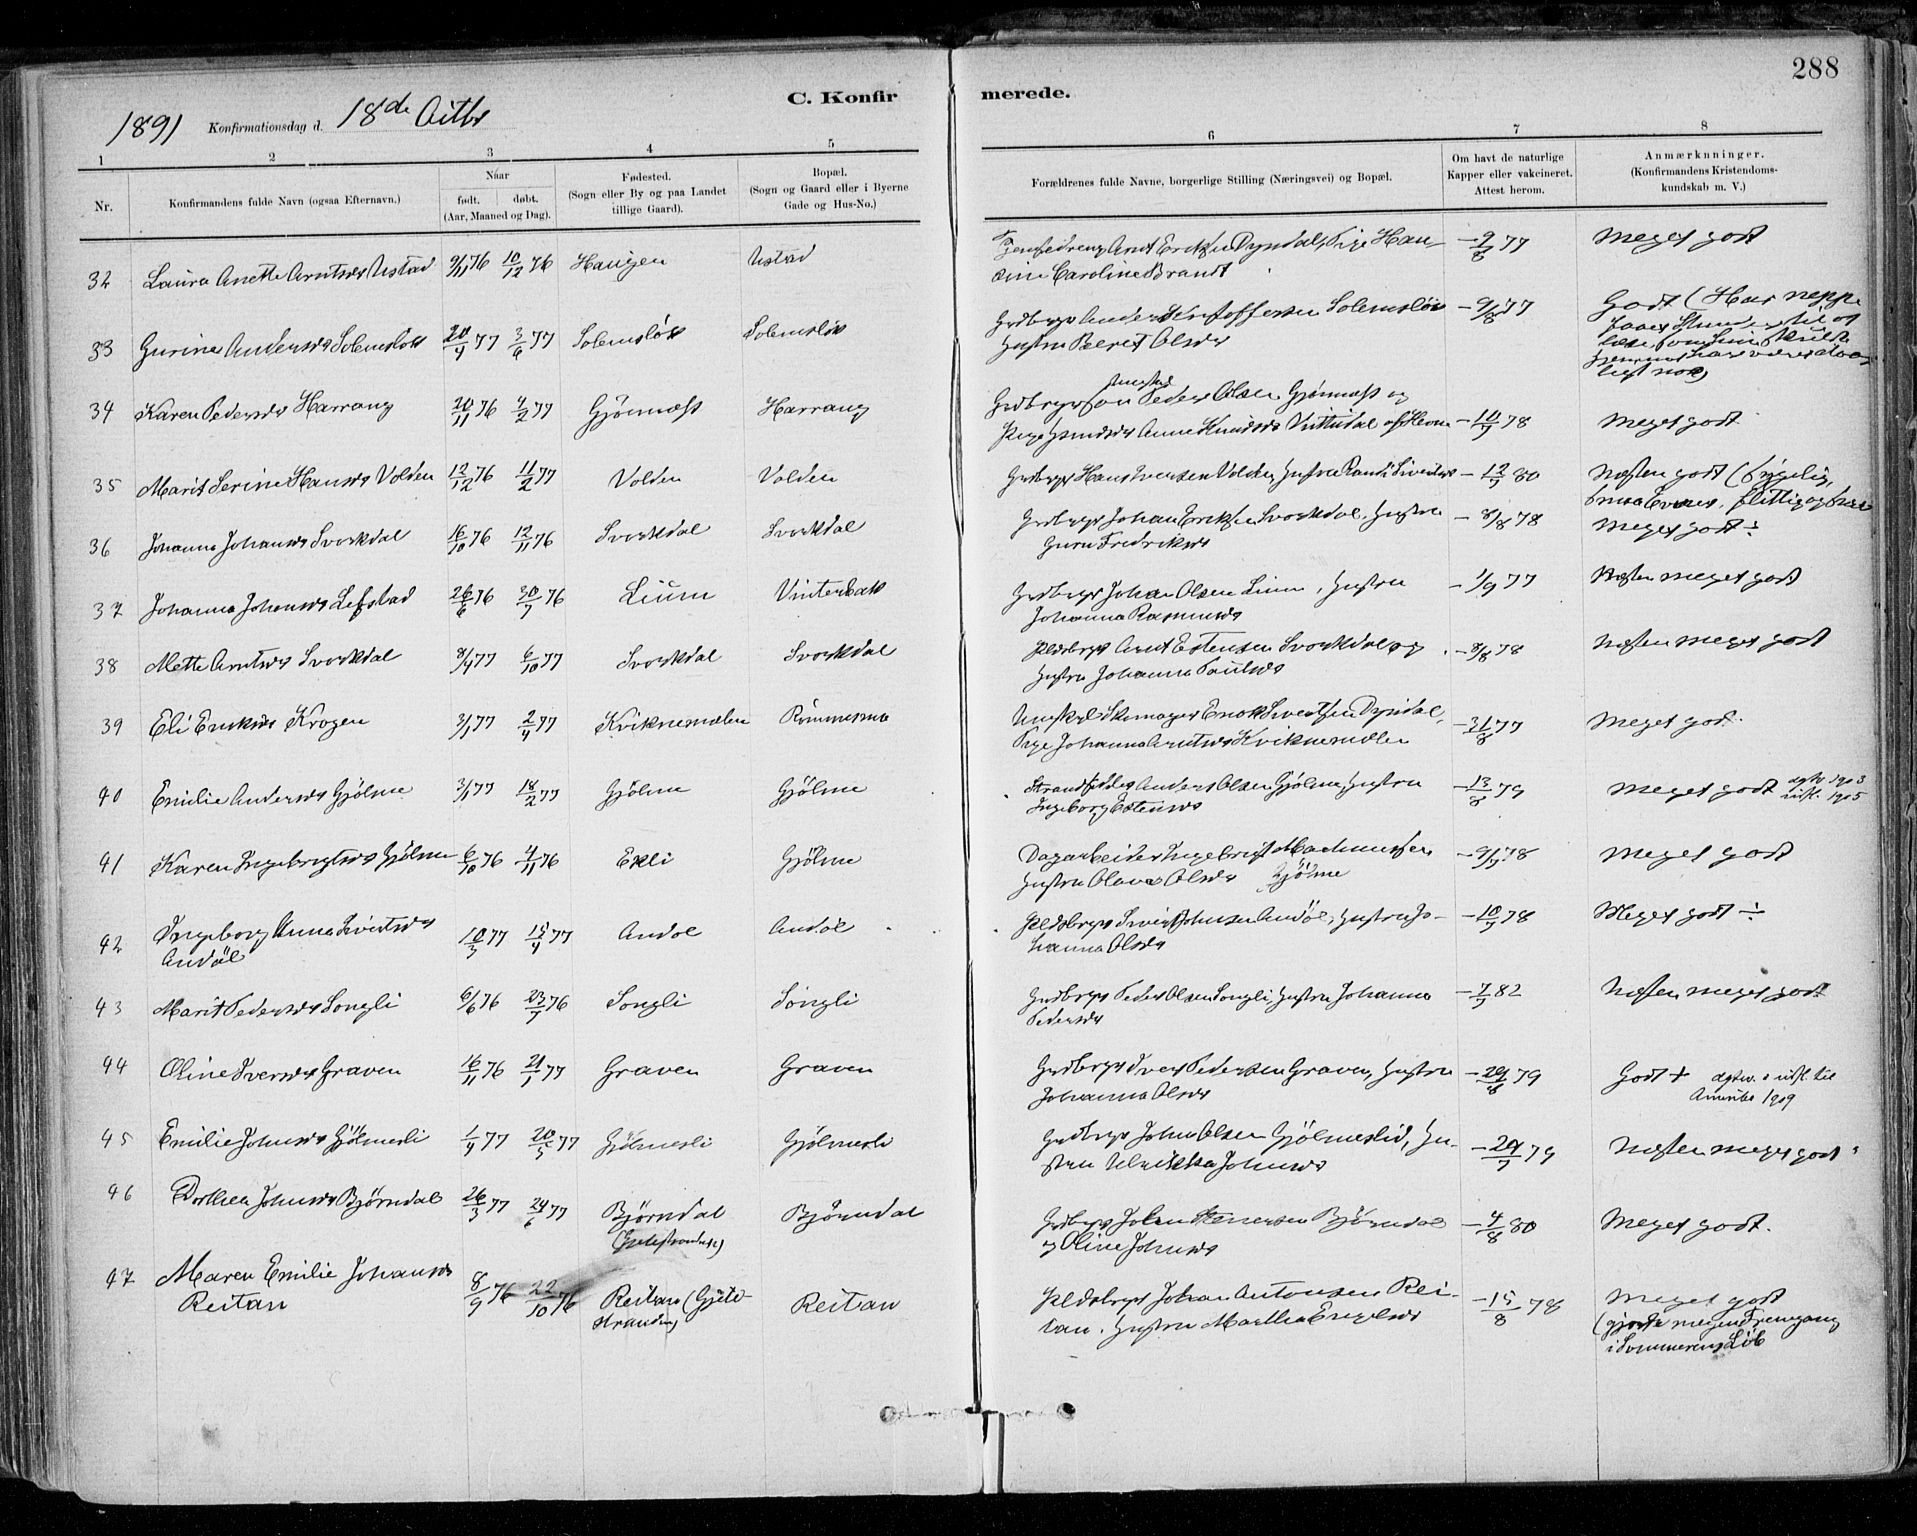 288
C. Konfirmerede.
1891 Konfirmationsdag d. 18de Octbr
1 2 3 4 5 6 7 8
Nr.
Konfirmandens fulde Navn (ogsaa Efternavn.)
Naar
født. døbt.
(Aar, Maaned og Dag).
Fødested.
(Sogn eller By og paa Landet
tillige Gaard).
Bopæl.
(Sogn og Gaard eller i Byerne
Gade og Hus-No.)
Forældrenes fulde Navne, borgerlige Stilling (Næringsvei) og Bopæl.
Om havt de naturlige
Kopper eller vakcineret.
Attest herom.
Anmærkninger.
(Konfirmandens Kristendoms-
kundskab m. V.)
32 Laura Anette Arntsdr Ustad 9/11 76 10/12 76 Haugen Ustad Arnt Dyndal, Pige Han- – 9/8 77 Meget godt
sine Caroline Brandt
33 Gurine Andersdr Solemsløk 20/4 77 3/6 77 Solemsløk Solemsløk Grdbrgr Anders Kristoffersen Solemsløk – 9/8 77 Godt (Har neppe
Hustru Beret Olsdr
34 Karen Pedersdr Harrang 20/11 76 4/2 77 Gjønnæss Harrang Grdbrgrsøn Peder Olsen Gjønnæss og
Anne Knudsdr – 10/9 78 Meget godt
35 Marit Serine Hansdr Volden 12/12 76 11/2 77 Volden Volden Grdbrgr Hans Iversen Volden, Hustru Randi Sivertsdr – 12/9 80 Næsten godt
36 Johanna Johansdr Svorkdal 16/10 76 12/11 76 Svorkdal Svorkdal Grdbrgr Johan Eriksen Svorkdal, Hustru – 8/8 78 Meget godt ÷
Guru Fredriksdr
37 Johanna Johansdr Lefstad 26/6 76 30/7 76 Lium Vinterbak Grdbrgr Johan Olsen Lium, Hustru – 1/9 77 Næsten meget godt
Johanna Rasmusdr
38 Mette Arntsdr Svorkdal 8/4 77 6/10 77 Svorkdal Svorkdal Pldsbrgr Arnt Estensen Svorkdal og – 8/8 78 Næsten meget godt
Hustru Johanna Paulsdr
39 Eli Enoksdr Krogen 3/1 77 2/4 77 Kviknemælen Rømmesmo Ungkrl Skomager Enok Sivertsen Dyndal, – 31/8 77 Meget godt.
Pige Johanna Arntsdr Kviknemælen
40 Emilie Andersdr Gjølme 3/1 77 18/2 77 Gjølme Gjølme Strandsidder Anders Olsen Gjølme, Hustru – 13/8 79 Meget godt
Ingeborg Estensdr
41 Karen Ingebrigtsdr Gjølme 6/10 76 4/11 76 Ekli Gjølme Dagarbeider Ingebrigt – 9/9 78 Meget godt
Hustru Olava Olsdr Gjølme
42 Ingeborg Anna Sivertsdr 10/3 77 15/4 77 Andøl Andøl Pldsbrgr Sivert Johnsen Andøl, Hustru Jo- – 10/9 78 Meget godt ÷
Andøl
hanna Olsdr
43 Marit Pedersdr Songli 6/6 76 23/7 76 Songli Songli Grdbrgr Peder Olsen Songli, Hustru Johanna – 7/9 82 Næsten meget godt
Pedersdr
44 Oline Iversdr Graven 16/11 76 21/1 77 Graven Graven Grdbrgr Iver Pedersen Graven, Hustru – 29/8 79 Godt + agtw. o. utfl. til
Johanna Olsdr Amerika 1909
45 Emilie Johnsdr Gjølmesli 1/4 77 20/5 77 Gjølmesli Gjølmesli Grdbrgr John Olsen Gjølmeslid, Hu- – 29/9 79 Næsten meget godt
stru Ulrikka Johnsdr
46 Dorthea Johnsdr Bjørndal 26/3 77 24/6 77 Bjørndal Bjørndal Grdbrgr John Bjørndal – 4/8 80 Meget godt.
og Oline Johnsdr
47 Maren Emilie Johansdr 8/9 76 22/10 76 Reitan (Gjete- Reitan Pldsbrgr Johan Antonsen Rei- – 15/8 78 Meget godt
Reitan stranden) tan, Hustru Martha Engelsdr (gjorde megen Fremgang
i Sommerens Løb